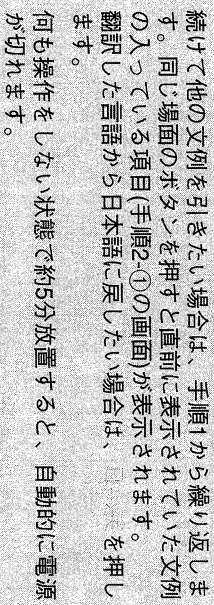 続けて他の文例を引きたい場合は、手順1から繰り返しま
す。同じ場面のボタンを押すと直前に表示されていた文例
の入っている項目(手順2-①の画面)が表示されます。
翻訳した言語から日本語に戻したい場合は、を押し
ます。
何も操作をしない状態で約5分放置すると、自動的に電源
が切れます。